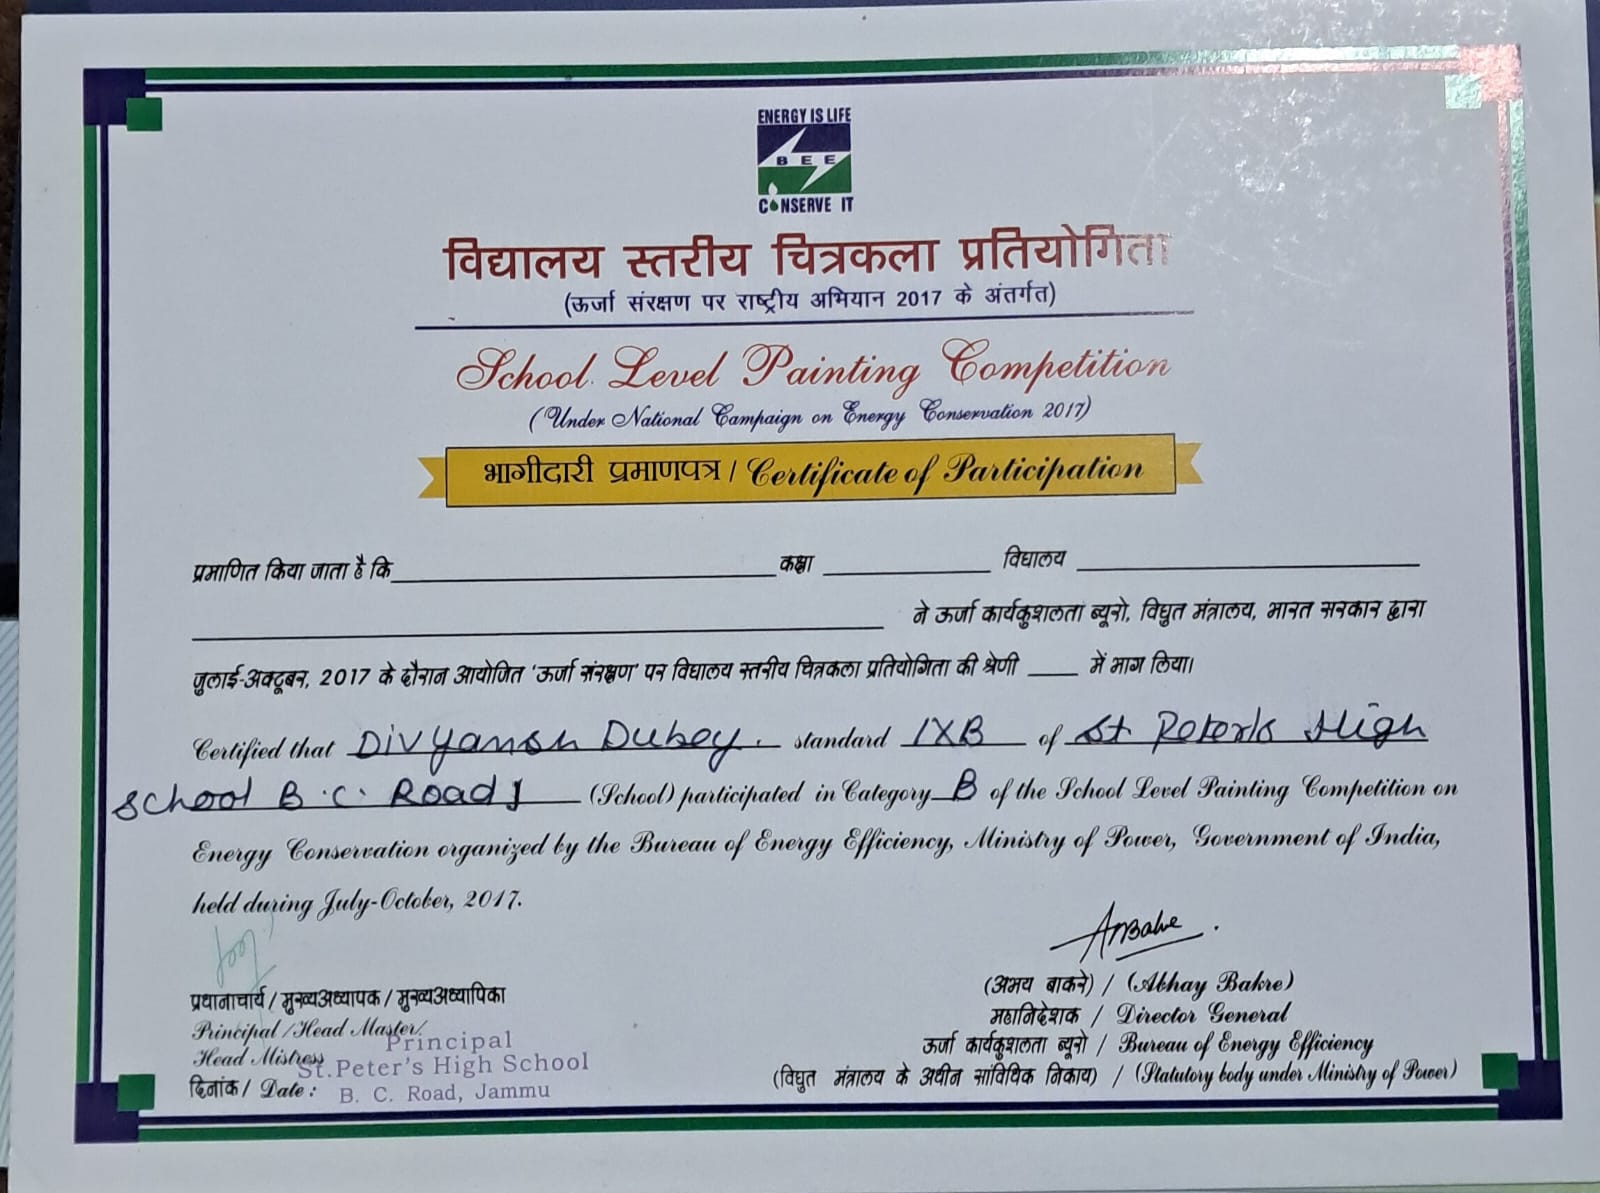 ENERGY IS LIFE
BEE
CONSERVE IT
विद्यालय स्तरीय चित्रकला प्रतियोगिता
(ऊर्जा संरक्षण पर राष्ट्रीय अभियान 2017 के अंतर्गत)
School Level Painting Competition
(Under National Campaign on Energy Conservation 2017)
भागीदारी प्रमाणपत्र / Certificate of Participation
प्रमाणित किया जाता है कि कक्षा विद्यालय
ने ऊर्जा कार्यकुशलता ब्यूरो, विद्युत मंत्रालय, भारत सरकार द्वारा
जुलाई-अक्टूबर, 2017 के दौरान आयोजित 'ऊर्जा संरक्षण' पर विद्यालय स्तरीय चित्रकला प्रतियोगिता की श्रेणी में भाग लिया।
Certified that Divyansh Dubey. standard IXB of St. Peter's High
School B.C. Road J (School) participated in Category B of the School Level Painting Competition on
Energy Conservation organized by the Bureau of Energy Efficiency, Ministry of Power, Government of India,
held during July-October, 2017.
प्रधानाचार्य / मुख्यअध्यापक / मुख्यअध्यापिका
Principal /Head Master/
Head Mistress
दिनांक / Date :
Principal
St.Peter's High School
B. C. Road, Jammu
(अभय बाकरे) / (Abhay Bakre)
महानिदेशक / Director General
ऊर्जा कार्यकुशलता ब्यूरो / Bureau of Energy Efficiency
(विद्युत मंत्रालय के अधीन सांविधिक निकाय) / (Statutory body under Ministry of Power)